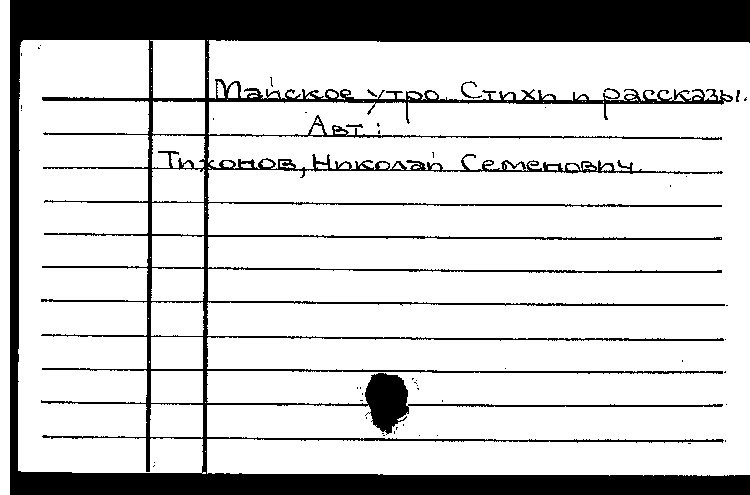 Майское утро. Стихи и рассказы.
Авт.:
Тихонов, Николай Семенович.